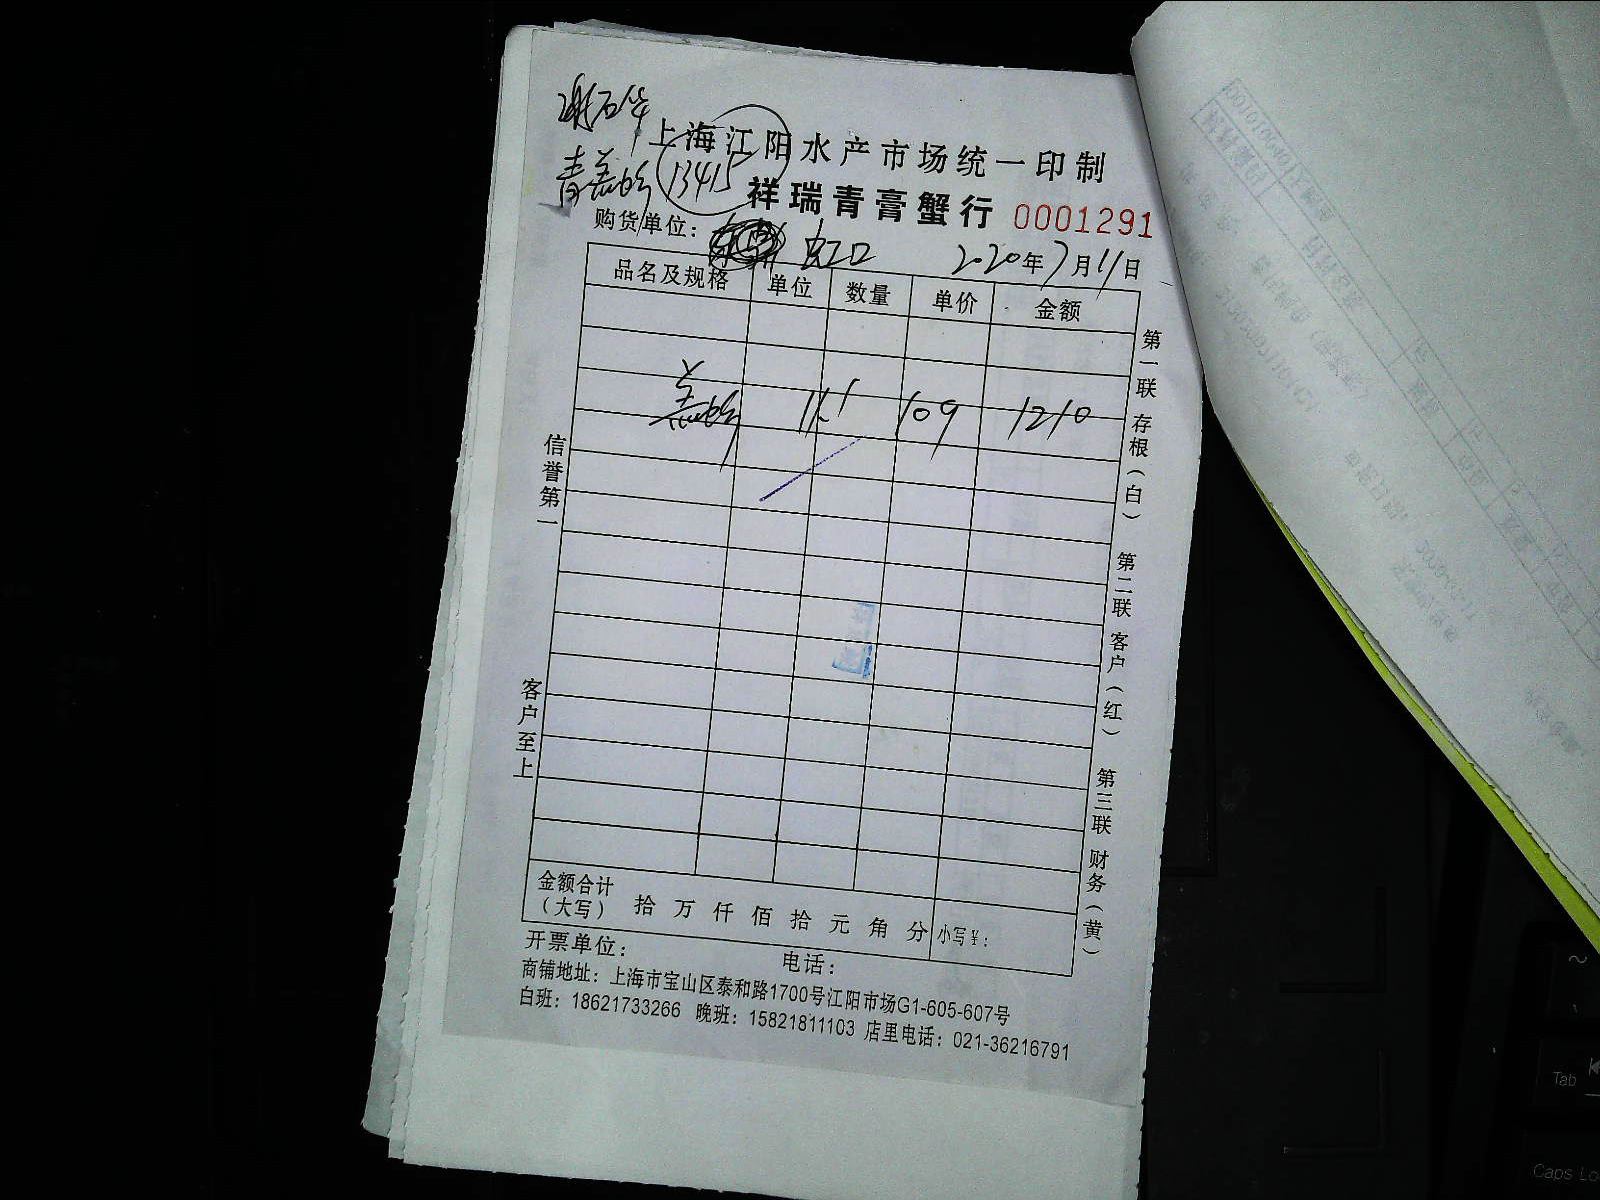 上海江阳水产市场统一印制
13415
祥瑞青膏蟹行 0001291
购货单位: 虹口 2020年7月11日
品名及规格 单位 数量 单价 金额
11.1 109 1210
信誉第一
客户至上
第一联 存根(白) 第二联 客户(红) 第三联 财务(黄)
金额合计
(大写) 拾 万 仟 佰 拾 元 角 分 小写¥:
开票单位: 电话:
商铺地址: 上海市宝山区泰和路1700号江阳市场G1-605-607号
白班: 18621733266 晚班: 15821811103 店里电话: 021-36216791
Tab
Caps Lo